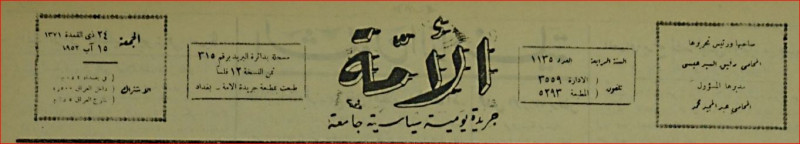 صاحبها ورئيس تحريرها
المحامي
مديرها المسؤول
المحامي عبد المجيد محمد
السنة الرابعة العدد ١١٣٥
تلفون
الادارة ٣٥٥٩
المطبعة ٥٢٩٣
الأمة
جريدة يومية سياسية جامعة
مسجلة بدائرة البريد برقم ٣١٥
ثمن النسخة ١٢ فلسا
طبعت بمطبعة جريدة الامة - بغداد
الجمعة
٢٤ ذي القعدة ١٣٧١
١٥ آب ١٩٥٢
الاشتراك
في بغداد
داخل العراق
خارج العراق